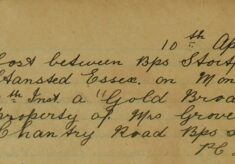 10th Ap
Lost between Bps Stort
Stansted Essex. on Mon
th Inst a "Gold Broo
property of Mrs Grove
Chantry Road Bps S
P.C.